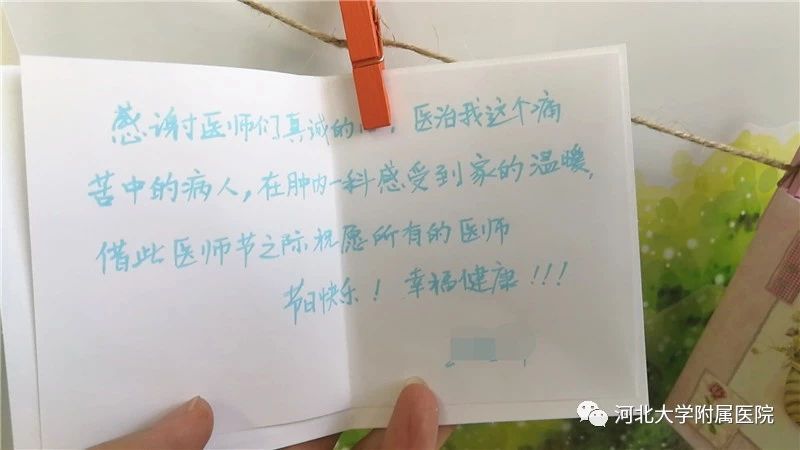 感谢医师们真诚的 , 医治我这个痛
苦中的病人,在肿内一科感受到家的温暖,
借此医师节之际祝愿所有的医师
节日快乐! 幸福健康!!!
河北大学附属医院